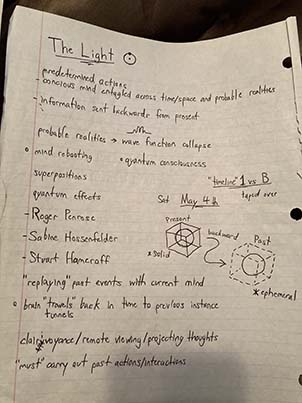 The Light
predetermined actions
- concious mind entangled across time/space and probable realities
- information sent backwards from present
probable realities → wave function collapse
• mind rebooting • quantum consciousness
superpositions "timeline" 1 vs B
taped over
quantum effects Sat May 4th
- Roger Penrose Present
- Sabine Hossenfelder backward Past
- Stuart Hameroff * solid
"replaying" past events with current mind * ephemeral
• brain "travels" back in time to previous instance
tunnels
clairvoyance/remote viewing/projecting thoughts
"must" carry out past actions/interactions